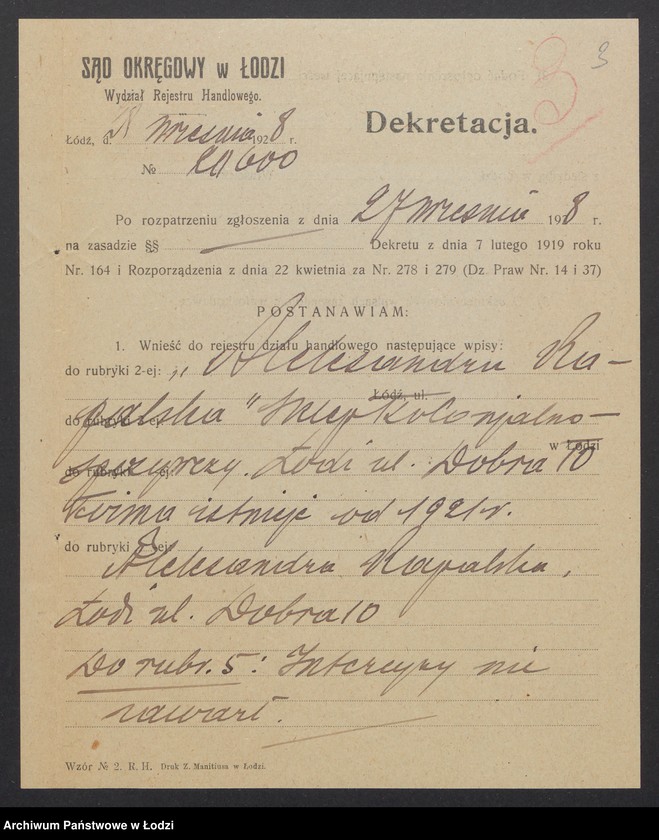 3
3
SĄD OKRĘGOWY w ŁODZI
Wydział Rejestru Handlowego.
Łódź, d. 28 września 1928 r.
№ 20600
Dekretacja.
Po rozpatrzeniu zgłoszenia z dnia 27 września 1928 r.
na zasadzie §§ Dekretu z dnia 7 lutego 1919 roku
Nr. 164 i Rozporządzenia z dnia 22 kwietnia za Nr. 278 i 279 (Dz. Praw Nr. 14 i 37)
POSTANAWIAM:
1. Wnieść do rejestru działu handlowego następujące wpisy:
do rubryki 2-ej: „Aleksandra Ra-
Łódź, ul.
do rubryki -ej:
palska" Sklep kolonjalno-
w Łodzi
do rubryki -ej:
spożywczy. Łódź ul. Dobra 10
Firma istnieje od 1921 r.
do rubryki 3-ej:
Aleksandra Rapalska,
Łódź ul. Dobra 10
Do rubr. 5: Intercyzy nie
zawarł.
Wzór № 2. R. H. Druk Z. Manitiusa w Łodzi.
Archiwum Państwowe w Łodzi